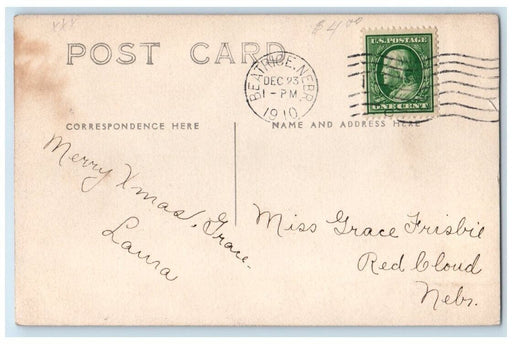 xxx
$4.00
POST CARD
U.S. POSTAGE
ONE CENT
BEATRICE, NEBR.
DEC 23
1-PM
1910
CORRESPONDENCE HERE
NAME AND ADDRESS HERE
Merry Xmas, Grace.
Laura
Miss Grace Frisbie
Red Cloud
Nebr.